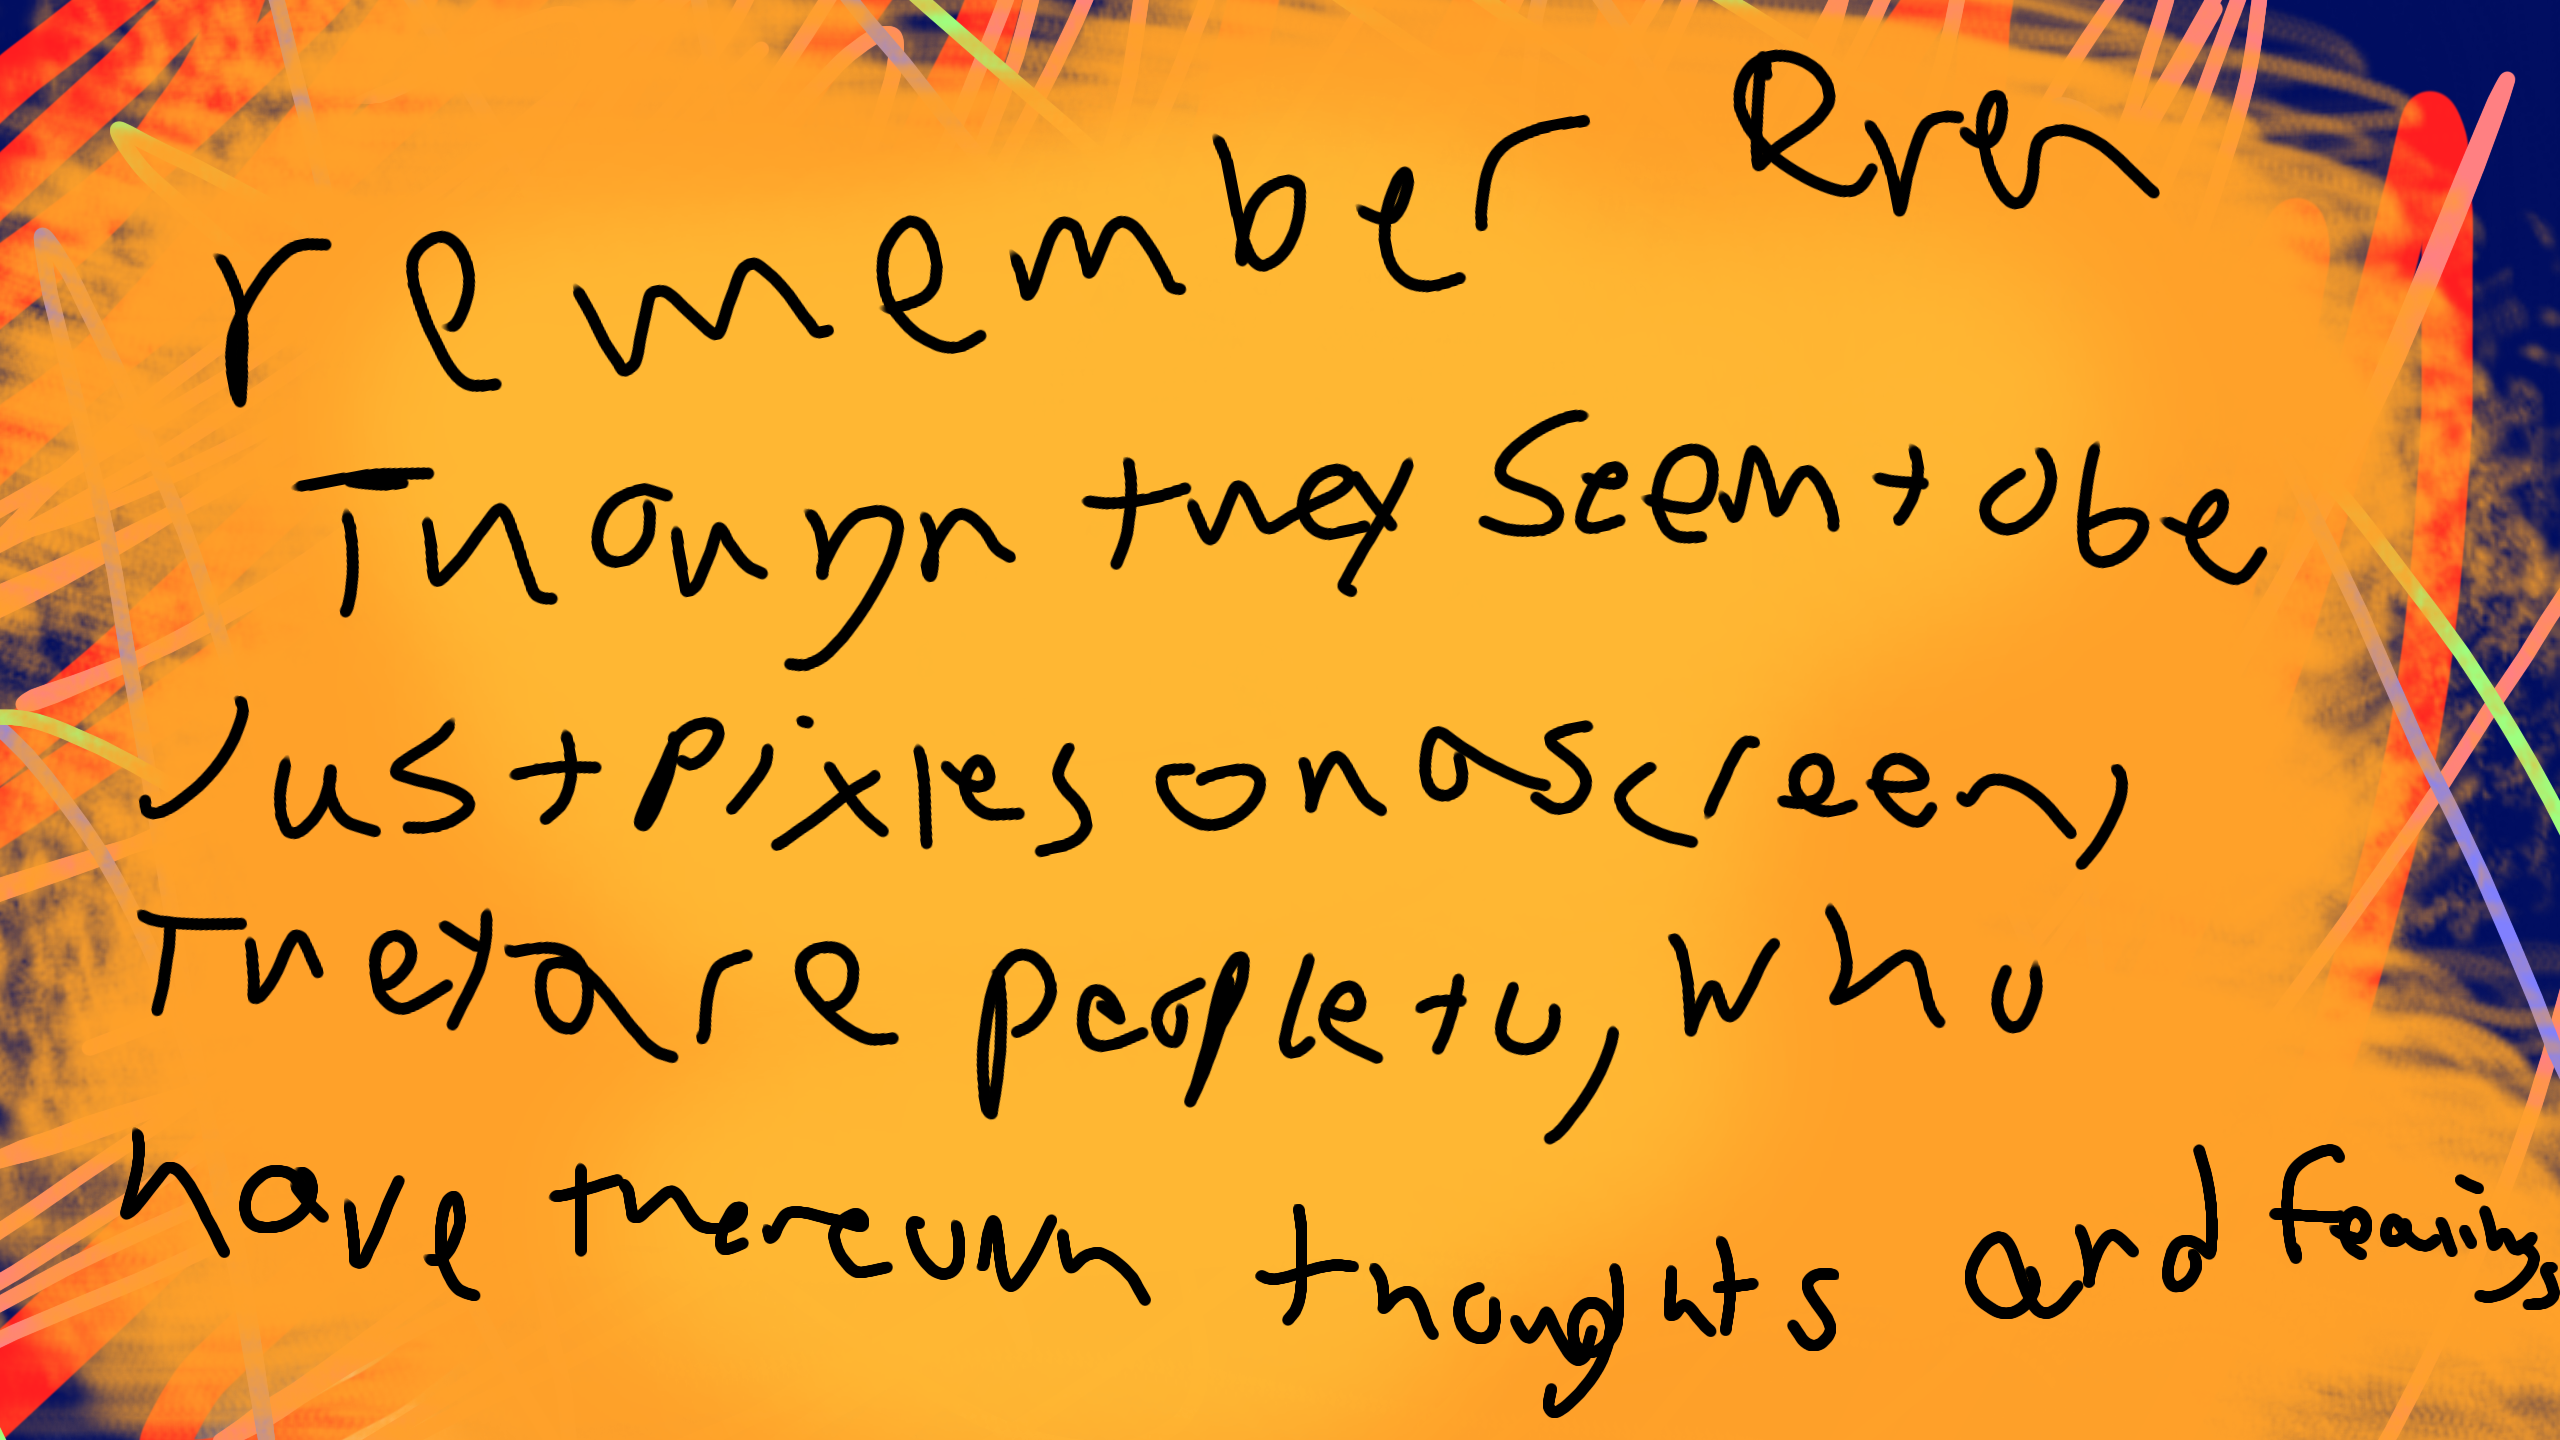 remember Even
Though they seem to be
Just pixles on a screen,
They are people to, who
have there own thoughts and fealings